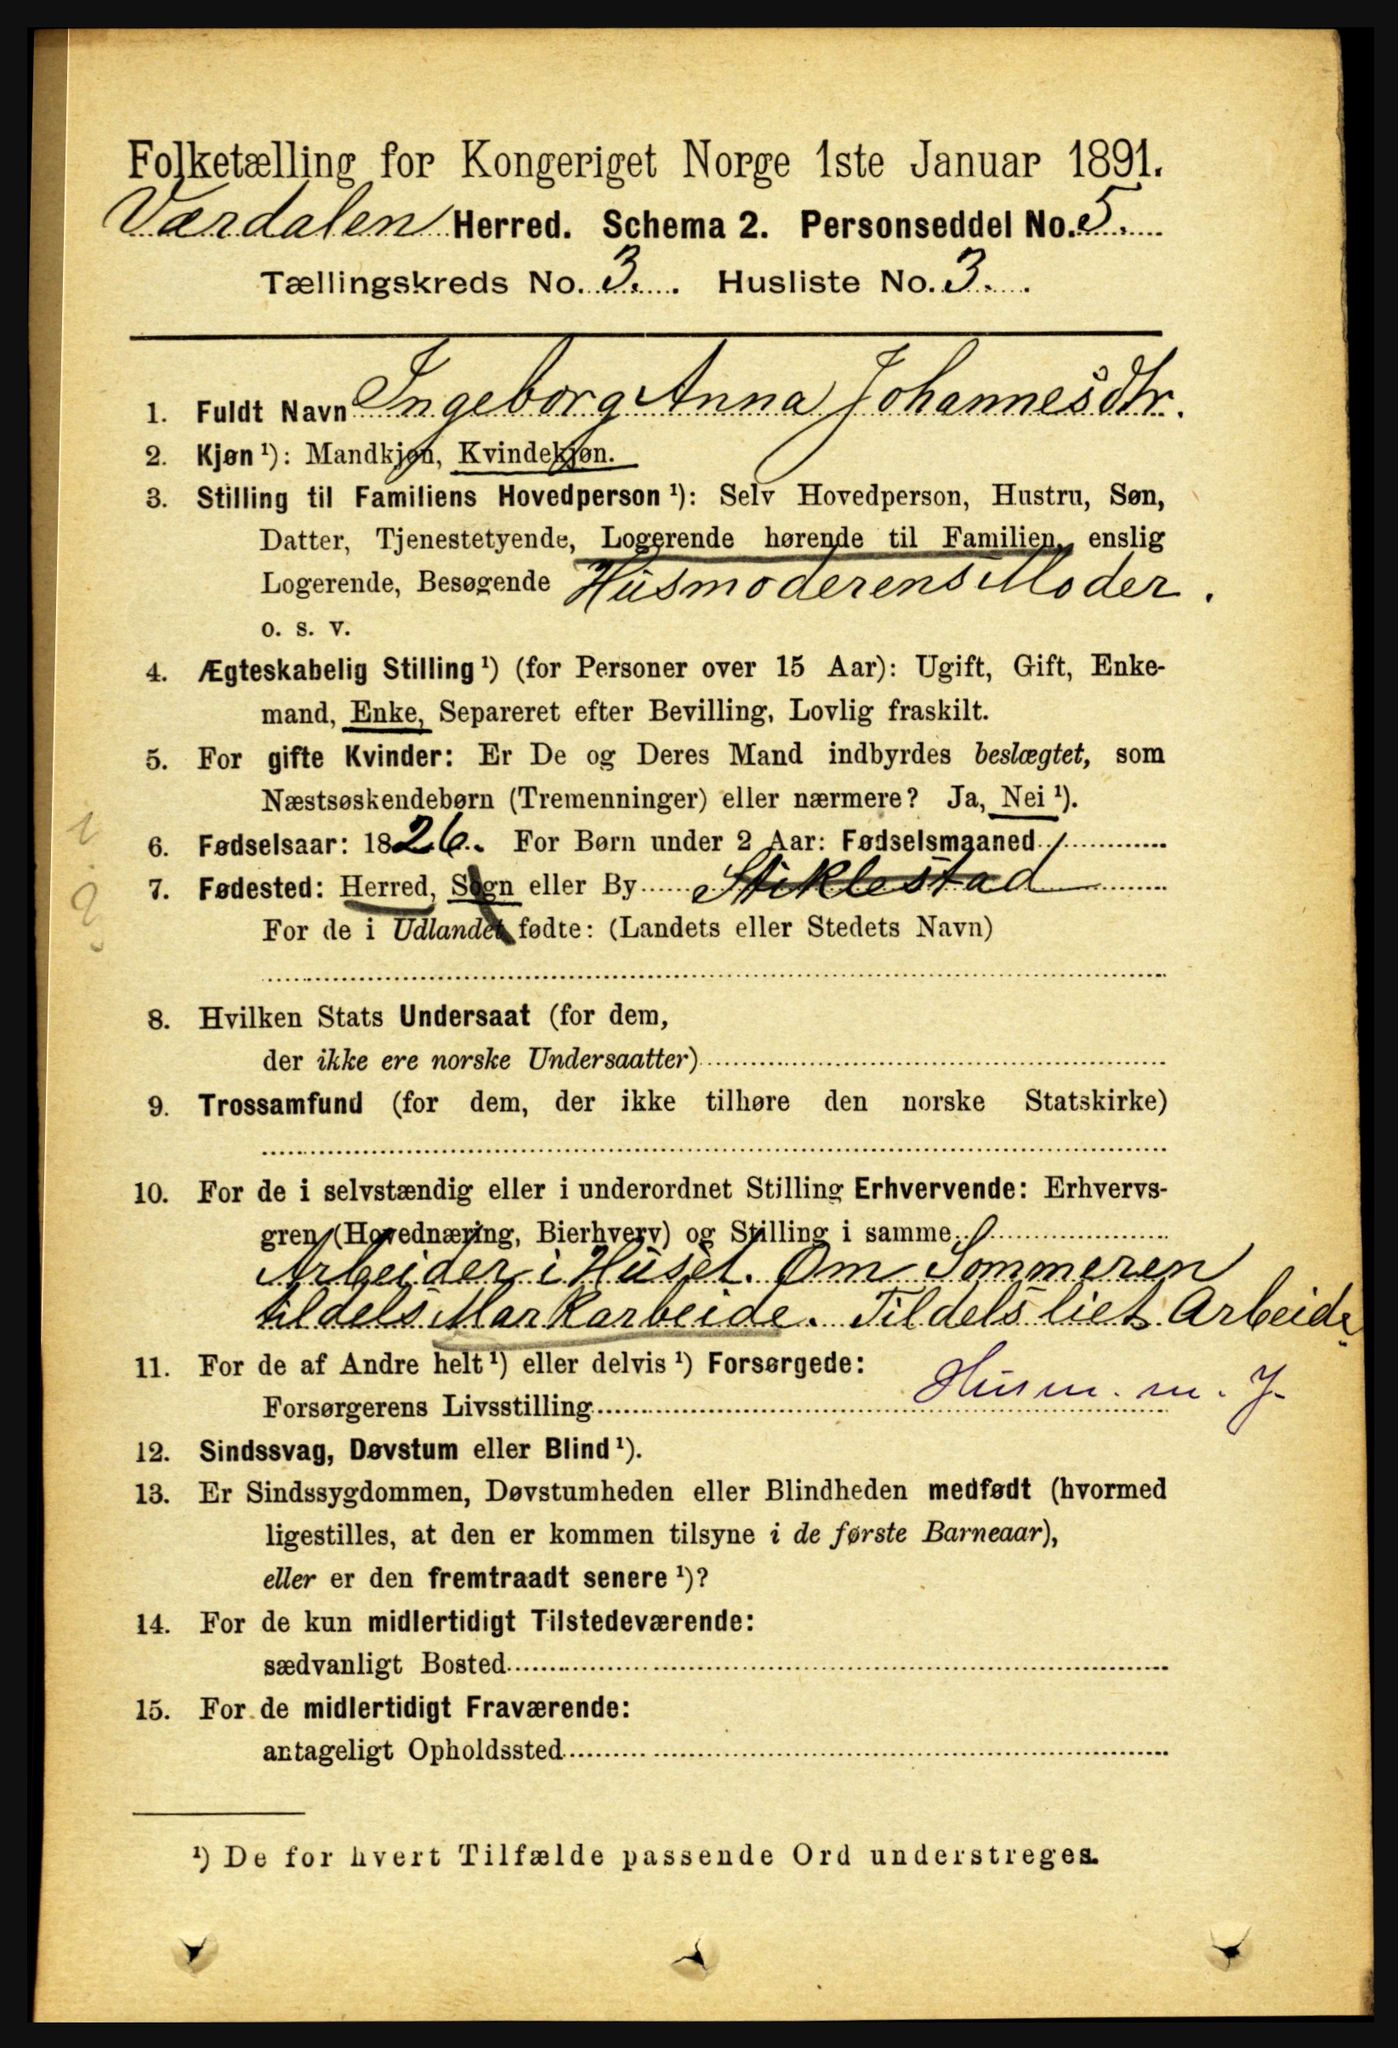 Folketælling for Kongeriget Norge 1ste Januar 1891.
Værdalen Herred. Schema 2. Personseddel No. 5.
Tællingskreds No. 3. Husliste No. 3.
1. Fuldt Navn Ingeborg Anna Johannesdtr.
2. Kjøn ¹): Mandkjøn, Kvindekjøn.
3. Stilling til Familiens Hovedperson ¹): Selv Hovedperson, Hustru, Søn,
Datter, Tjenestetyende, Logerende hørende til Familien, enslig
Logerende, Besøgende Husmoderens Moder.
o. s. v.
4. Ægteskabelig Stilling ¹) (for Personer over 15 Aar): Ugift, Gift, Enke-
mand, Enke, Separeret efter Bevilling, Lovlig fraskilt.
5. For gifte Kvinder: Er De og Deres Mand indbyrdes beslægtet, som
Næstsøskendebørn (Tremenninger) eller nærmere? Ja, Nei ¹).
6. Fødselsaar: 1826. For Børn under 2 Aar: Fødselsmaaned
7. Fødested: Herred, Sogn eller By Stiklestad
For de i Udlandet fødte: (Landets eller Stedets Navn)
8. Hvilken Stats Undersaat (for dem,
der ikke ere norske Undersaatter)
9. Trossamfund (for dem, der ikke tilhøre den norske Statskirke)
10. For de i selvstændig eller i underordnet Stilling Erhvervende: Erhvervs-
gren (Hovednæring, Bierhverv) og Stilling i samme
Arbeider i Huset. Om Sommeren
tildels Markarbeide. Tildels liet Arbeide
11. For de af Andre helt ¹) eller delvis ¹) Forsørgede:
Forsørgerens Livsstilling Husm. m. J.
12. Sindssvag, Døvstum eller Blind ¹).
13. Er Sindssygdommen, Døvstumheden eller Blindheden medfødt (hvormed
ligestilles, at den er kommen tilsyne i de første Barneaar),
eller er den fremtraadt senere ¹)?
14. For de kun midlertidigt Tilstedeværende:
sædvanligt Bosted
15. For de midlertidigt Fraværende:
antageligt Opholdssted
¹) De for hvert Tilfælde passende Ord understreges.